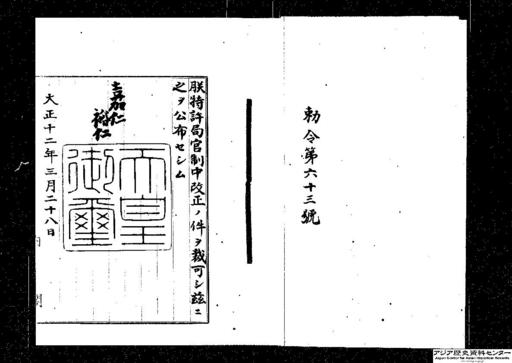 勅令第六十三號
朕特許局官制中改正ノ件ヲ裁可シ茲ニ
之ヲ公布セシム
嘉仁
裕仁
天皇
御璽
大正十二年三月二十八日
アジア歴史資料センター
Japan Center for Asian Historical Records